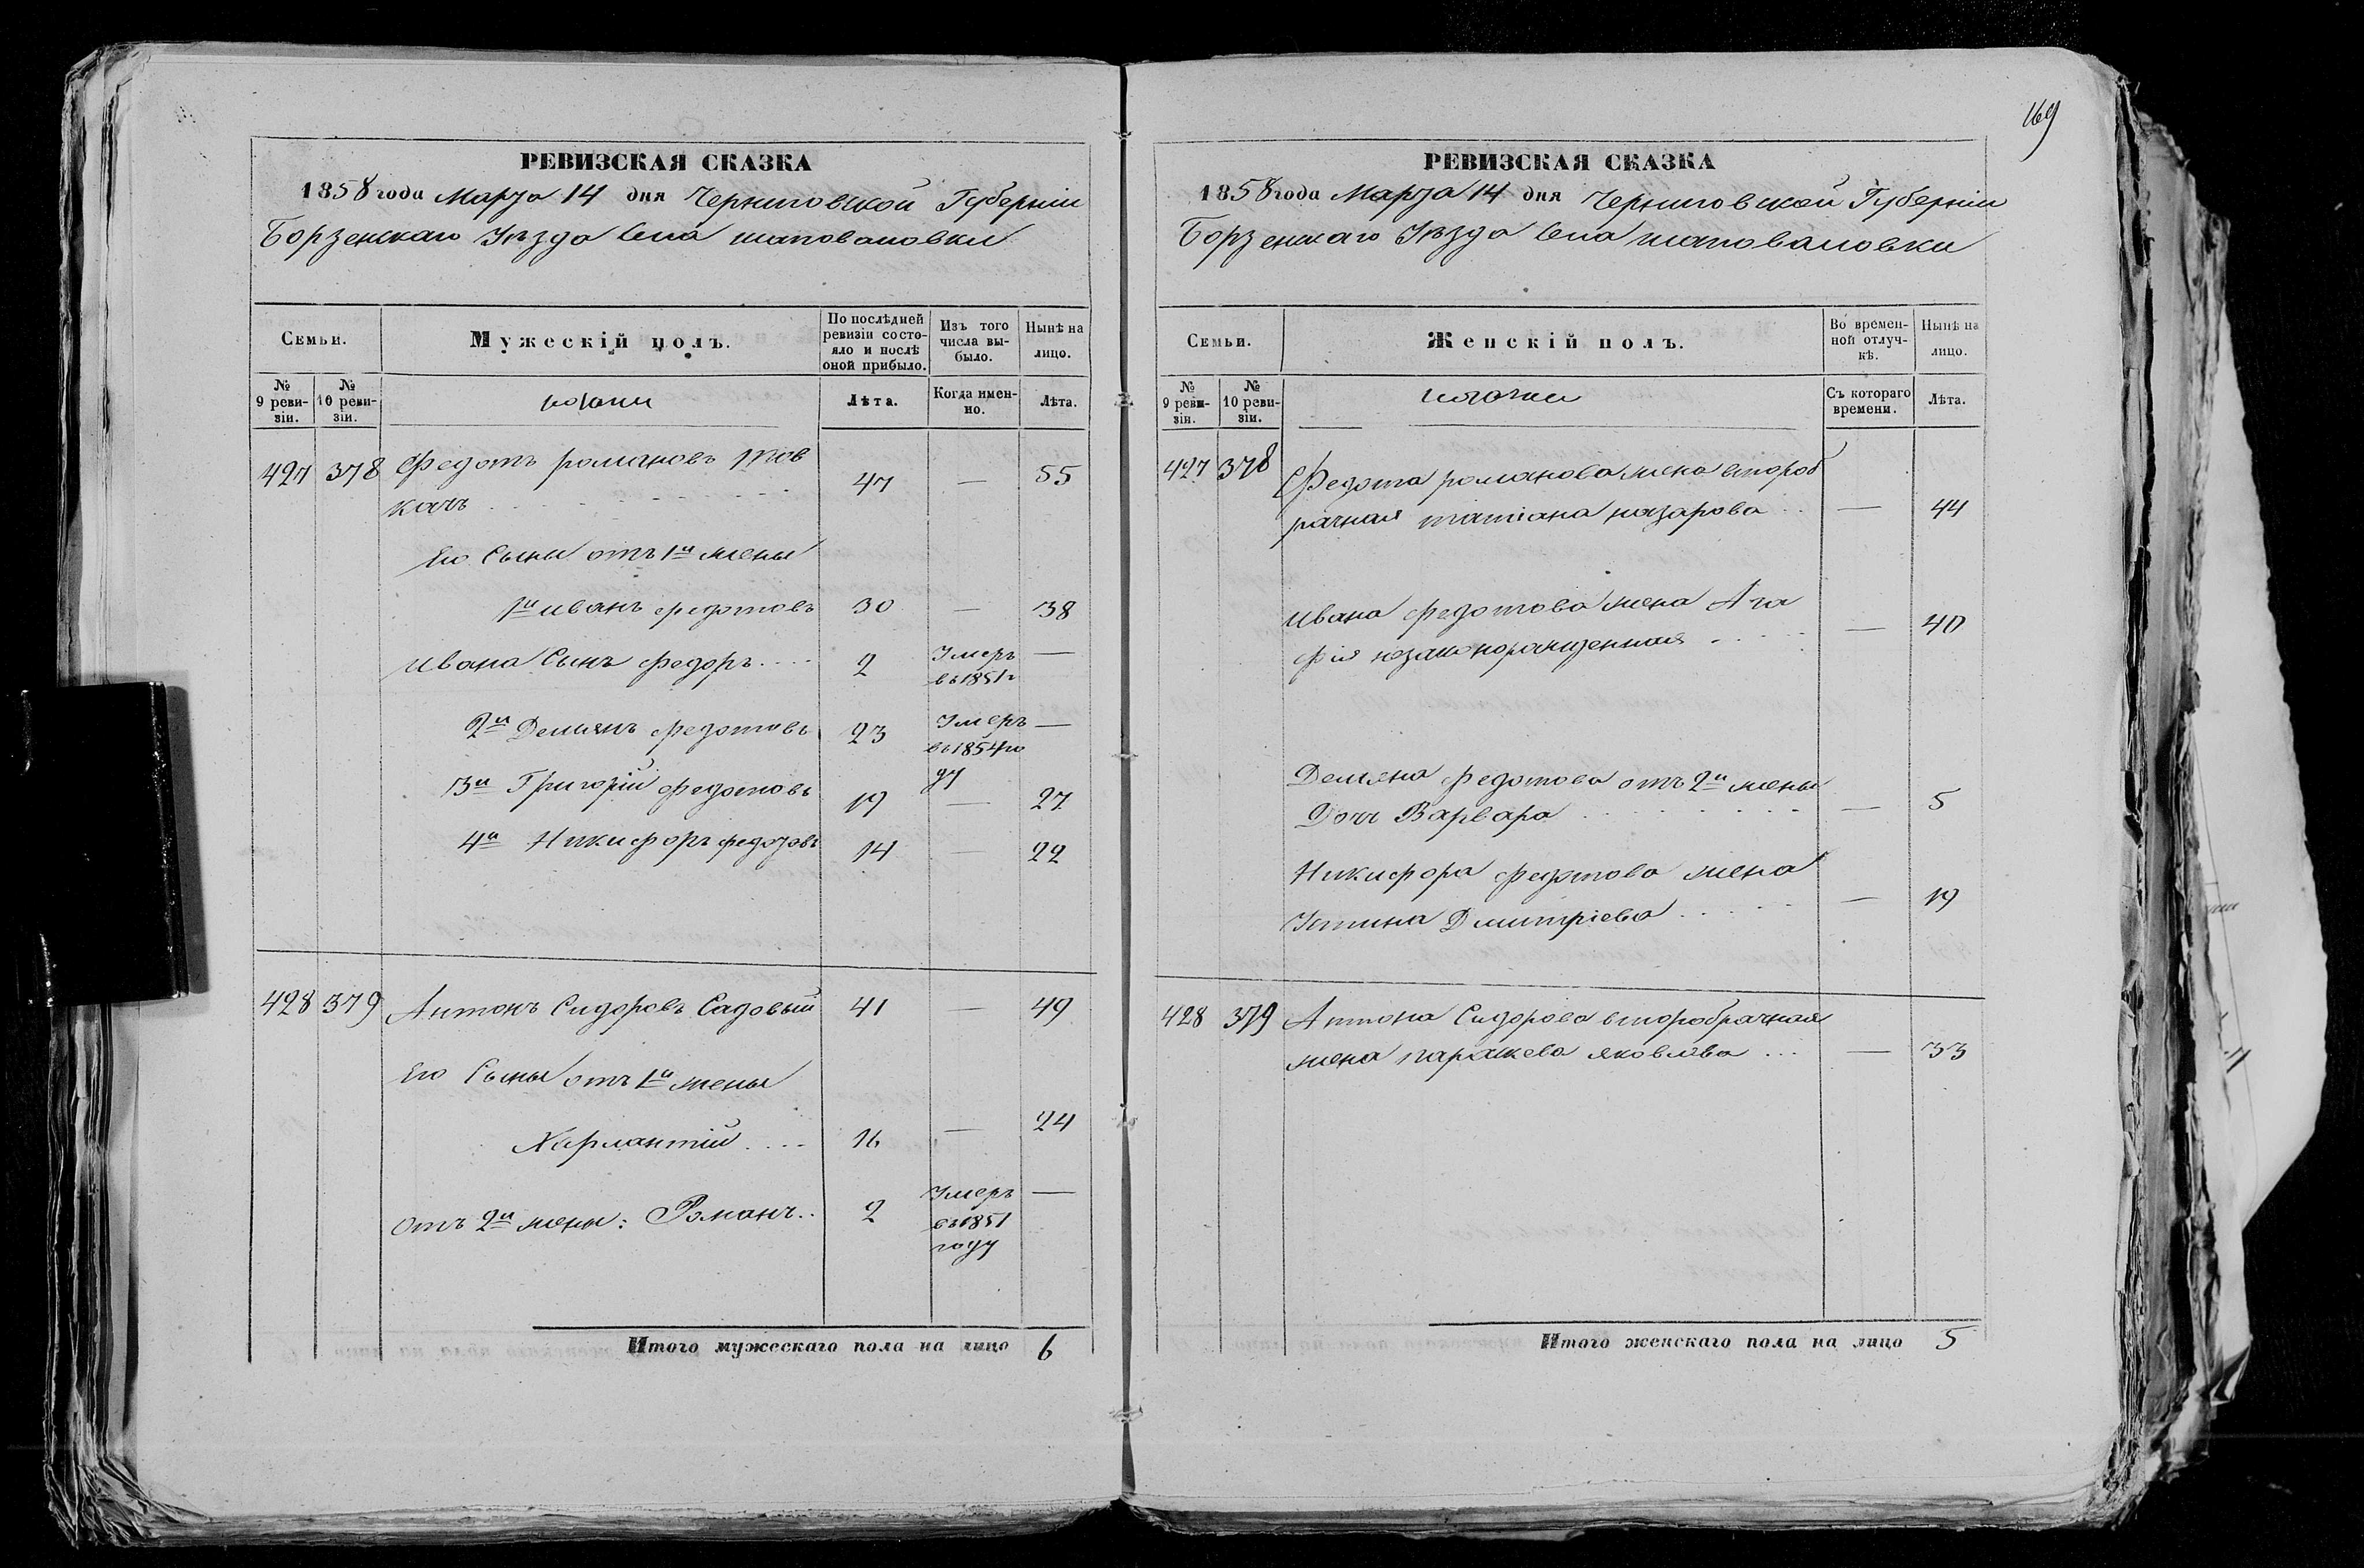 РЕВИЗСКАЯ СКАЗКА
1858 года Марта 14 дня Черниговской Губерніи
Борзенскаго Уѣзда Села шаповаловки
Семьи.
Мужескій полъ.
По послѣдней ревизіи состояло и послѣ оной прибыло.
Изъ того числа выбыло.
Нынѣ на лицо.
№ 9 ревизіи.
№ 10 ревизіи.
козаки
Лѣта.
Когда именно.
Лѣта.
427 378 Федотъ романовъ
качъ 47 — 55
Его Сыны отъ 1й жены
1й иванъ федотовъ 30 — 38
ивана Сынъ федоръ 2 Умеръ въ 1851г —
2й Демянъ федотовъ 23 Умеръ въ 1854 году —
3й Григорій федотовъ 19 — 27
4й Никифоръ федотовъ 14 — 22
428 379 Антонъ Сидоровъ Садовый 41 — 49
Его Сыны отъ 1й жены
Харлантій 16 — 24
отъ 2й жены: Романъ 2 Умеръ въ 1851 году —
Итого мужескаго пола на лицо 6
169
РЕВИЗСКАЯ СКАЗКА
1858 года Марта 14 дня Черниговской Губерніи
Борзенскаго Уѣзда Села шаповаловки
Семьи.
Женскій полъ.
Во временной отлучкѣ.
Нынѣ на лицо.
№ 9 ревизіи.
№ 10 ревизіи.
козачки
Съ котораго времени.
Лѣта.
427 378 Федота романова жена второб
рачная татіана назарова — 44
ивана федотова жена Ага
фія незаконорожденная — 40
Демяна федотова отъ 2й жены
Дочь Варвара — 5
Никифора федотова жена
Устина Дмитріева — 19
428 379 Антона Сидорова второбрачная
жена параскева яковлева — 33
Итого женскаго пола на лицо 5